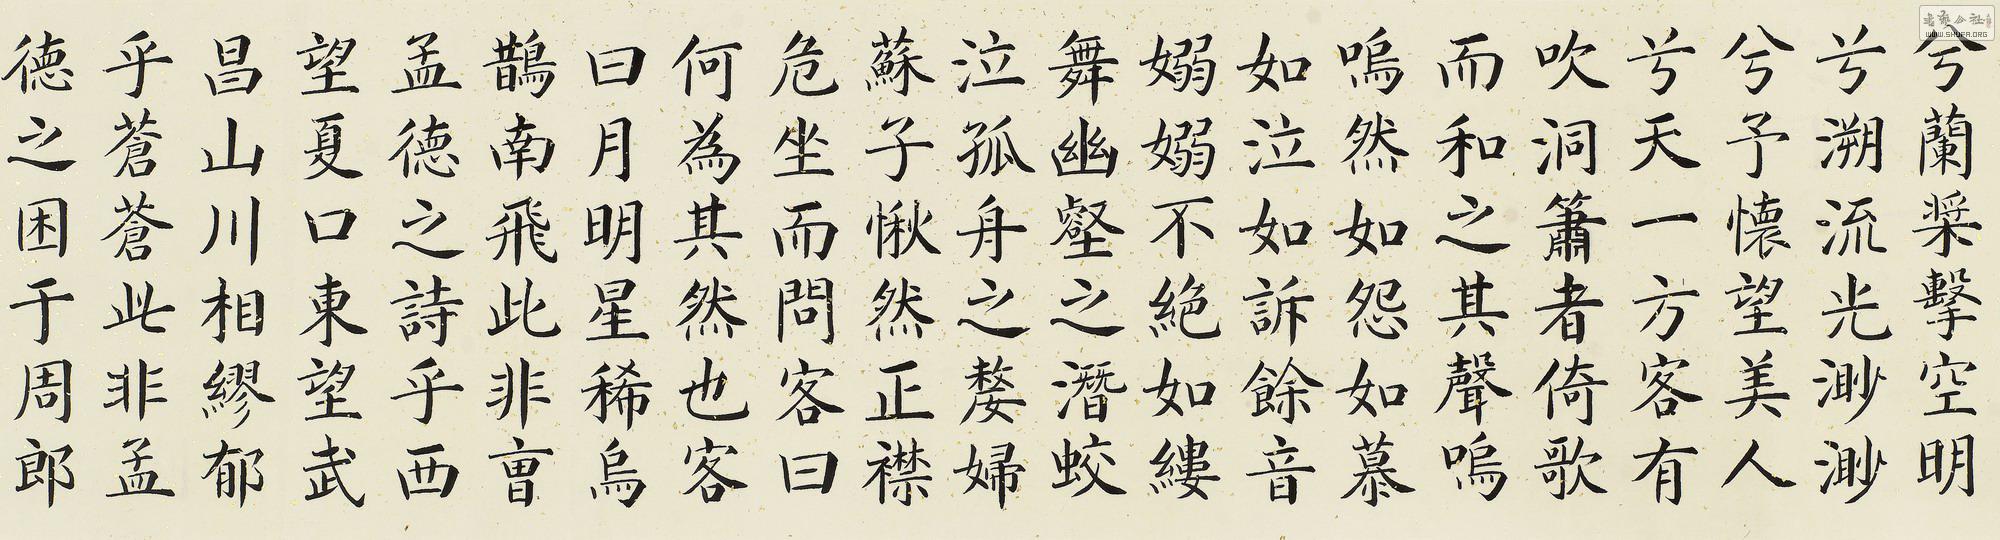 兮蘭槳擊空明
兮溯流光渺渺
兮予懷望美人
兮天一方客有
吹洞簫者倚歌
而和之其聲嗚
嗚然如怨如慕
如泣如訴餘音
嫋嫋不絕如縷
舞幽壑之潛蛟
泣孤舟之嫠婦
蘇子愀然正襟
危坐而問客曰
何為其然也客
曰月明星稀烏
鵲南飛此非曹
孟德之詩乎西
望夏口東望武
昌山川相繆郁
乎蒼蒼此非孟
德之困于周郎
WWW.SHUFA.ORG